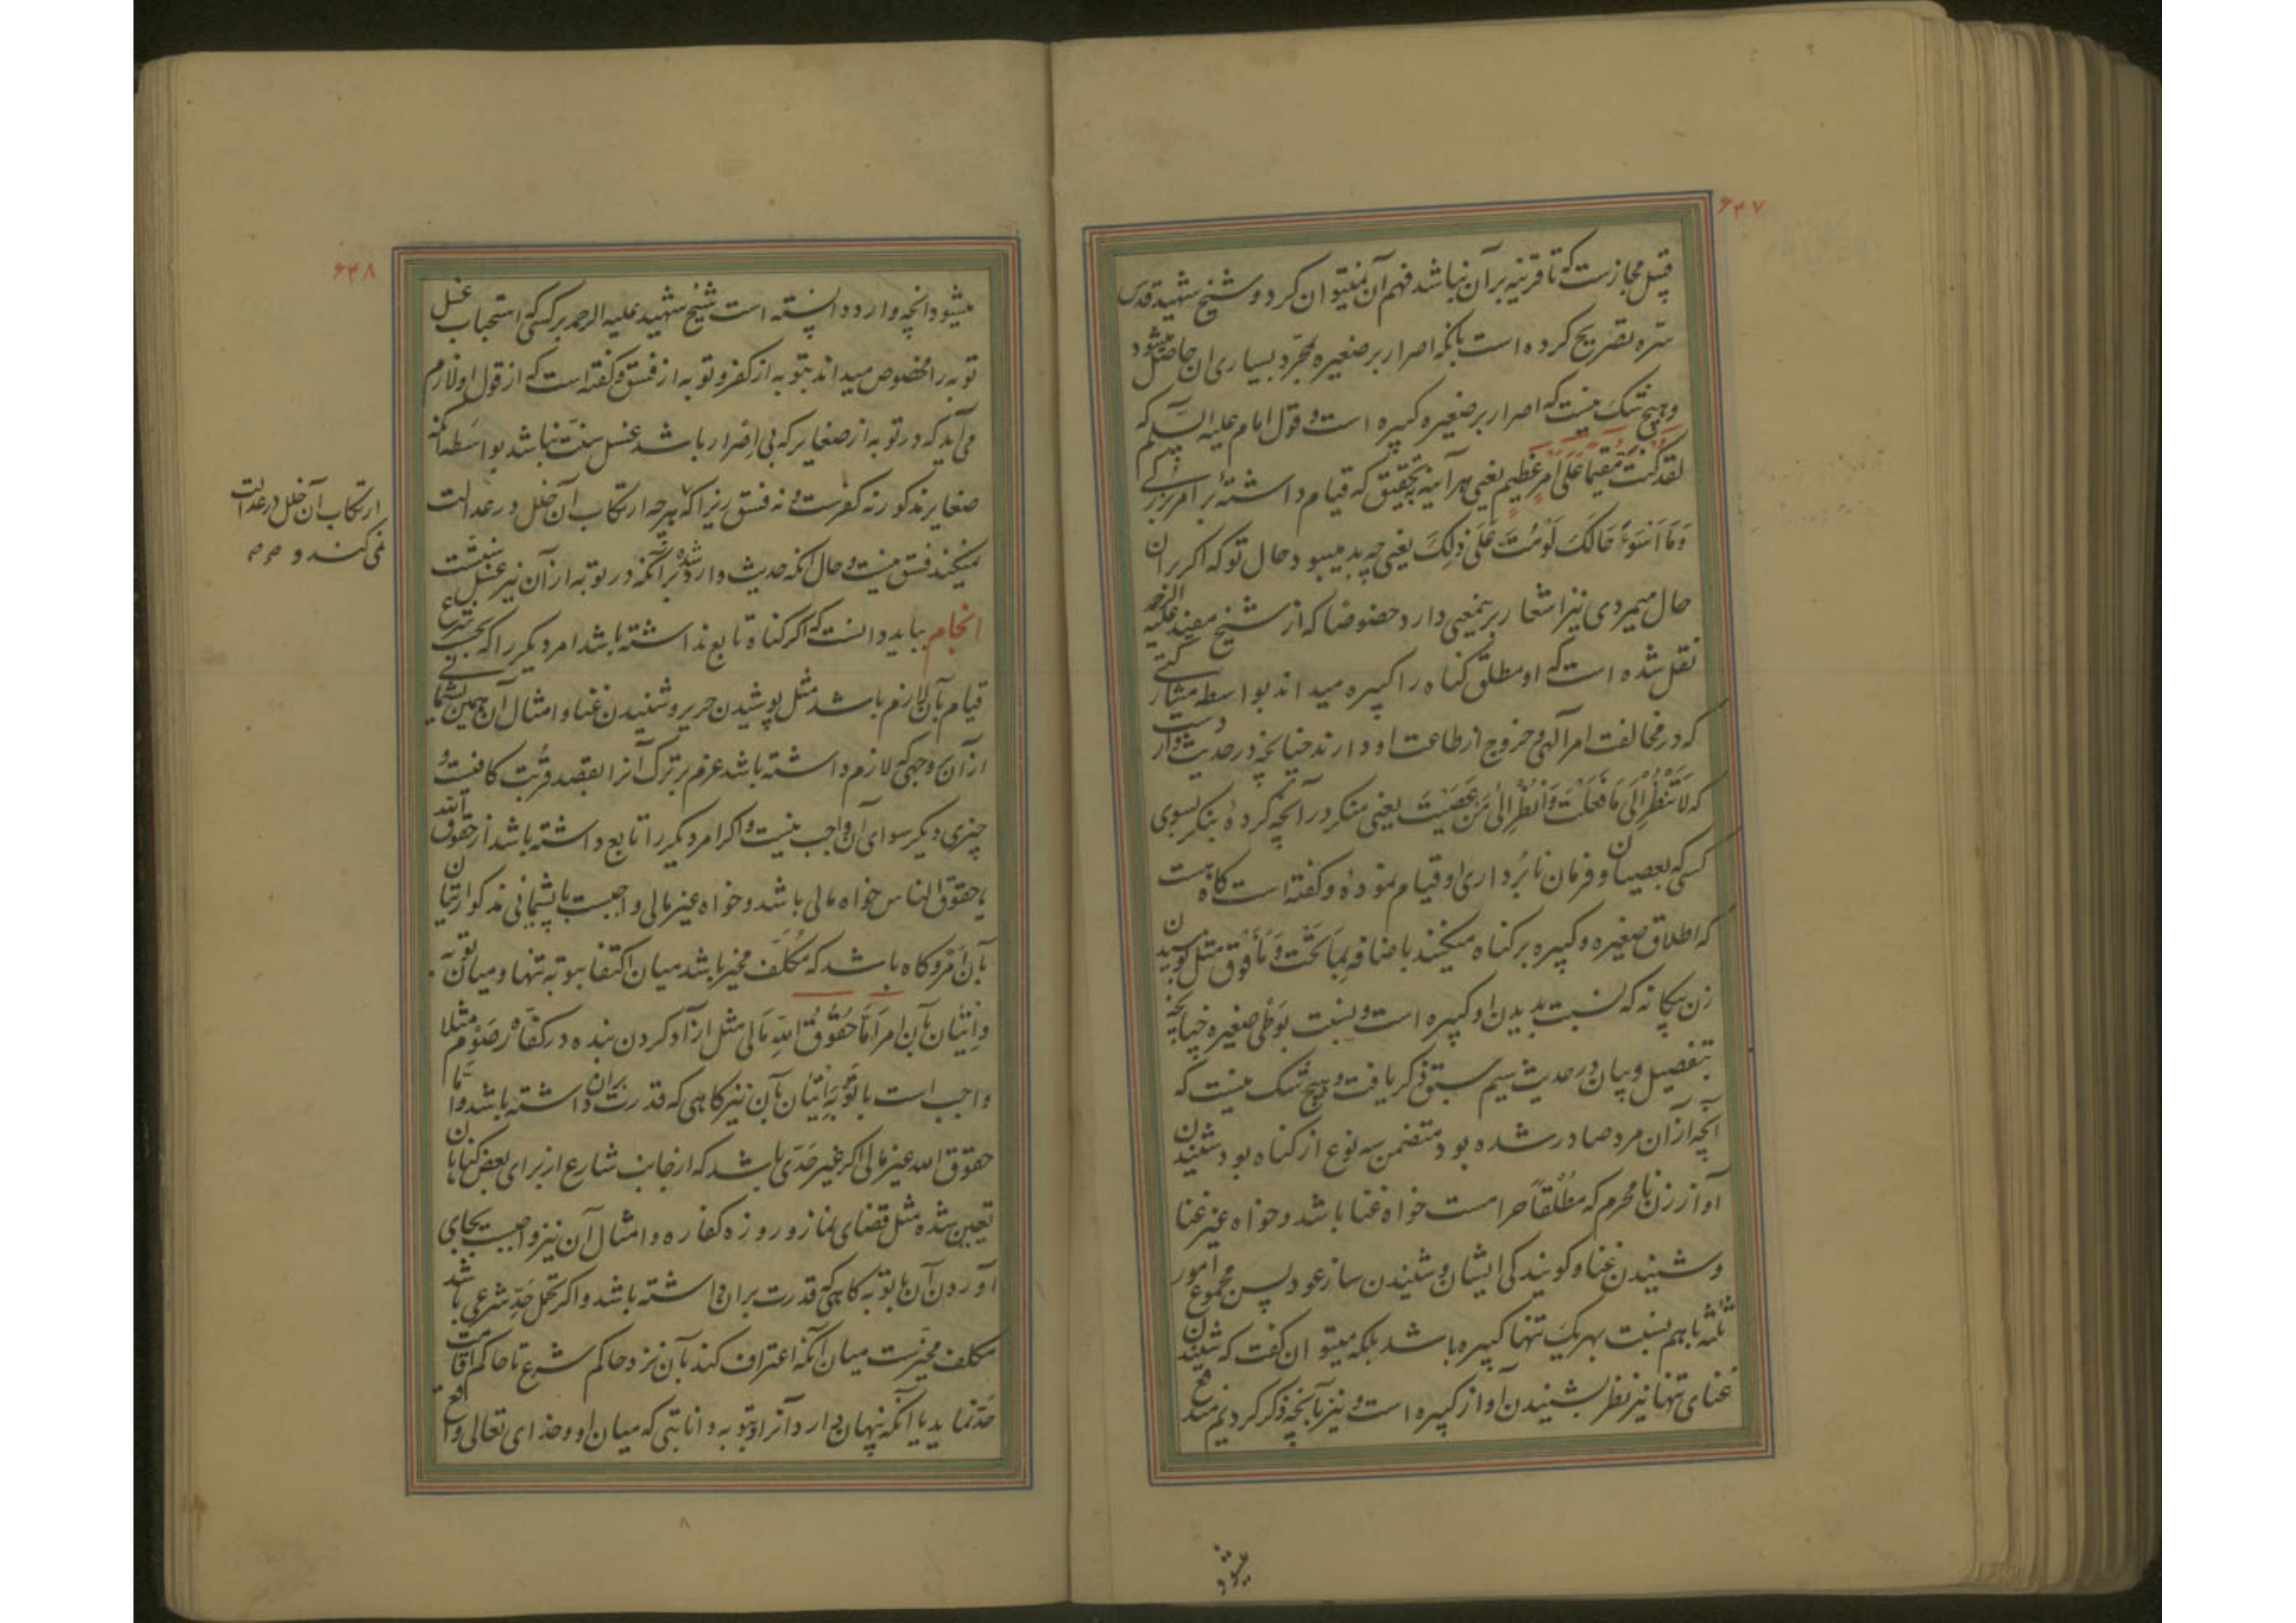 ۶۴۷
قبیل مجازست که تا قرینه بر آن نباشد فهم آن نمیتوان کرد و شیخ شهید قدس
سره تصریح کرده است بانکه اصرار بر صغیره بمجرد بسیاری ان حاصل میشود
و هیچ شک نیست که اصرار بر صغیره کبیره است و قول امام علیه السلام که
لقد کنت مقیما علی امر عظیم یعنی هر آینه بتحقیق که قیام داشتهٔ بر امر بزرگی
وَمَا اَسْوَءَ حَالَکَ لَوْمُتَّ عَلَی ذٰلِکَ یعنی چه بد میبود حال تو که اکر بران
حال میمردی نیز اشعار بر ینمعنی دارد خصوصا که از شیخ مفید علیه الرحمه
نقل شده است که او مطلق کناه را کبیره میداند بواسطه مشارکتی
که در مخالفت امر آلهی و خروج از طاعت او دارند چنانچه در حدیث وارد است
که لَا تَنْظُرْ اِلَی مَا فَعَلْتَ وَانْظُرْ اِلیٰ مَنْ عَصَیْتَ یعنی منکر در آنچه کردهٔ بنکر بسوی
کسی که بعصیان و فرمان نابرداری او قیام نمودهٔ و کفته است کاه هست
که اطلاق صغیره و کبیره بر کناه میکنند باضافه بِمَا تَحْتَ وَ مَا فَوْق مثل بوسیدن
زن بیکانه که نسبت بدیدن او کبیره است و بنسبت بوطی صغیره چنانچه
بتفصیل و بیان در حدیث سیم سبق ذکر یافت و هیچ شک نیست که
آنچه از ان مرد صادر شده بود متضمن سه نوع از کناه بود شنیدن
آواز زن نامحرم که مُطْلَقاً حرامست خواه غنا باشد و خواه غیر غنا
و شنیدن غنا و کویندکی ایشان و شنیدن ساز عود پس مجموع امور
ثلثه با هم بنسبت بهر یک تنها کبیره باشد بلکه میتوان کفت که شنیدن
غنای تنها نیز نظر بشنیدن آواز کبیره است و نیز بآنچه ذکر کردیم مندفع
میشود
۶۴۸
میشود انچه وارد دانسته است شیخ شهید علیه الرحمه بر کسی که استحباب غسل
توبه را مخصوص میداند بتوبه از کفر و توبه از فسق و کفته است که از قول او لازم
می آید که در توبه از صغایر که بی اصرار باشد غسل سنت نباشد بواسطه آنکه
صغایر مذکور نه کفرست و نه فسق زیرا که هر چه ارتکاب آن خلل در عدالت
نمیکند فسق نیست و حال آنکه حدیث وارد شده بر آنکه در توبه از آن نیز غسل سنتست
انجام بباید دانست که اکر کناه تابع نداشته باشد امر دیکر را که بحسب شرع
قیام بآن لازم باشد مثل پوشیدن حریر و شنیدن غنا و امثال آن همین پشیمانی
از آن بر وجهی که لازم داشته باشد عزم بر ترک آنرا بقصد قربت کافیست و
چیزی دیکر سوای آن واجب نیست و اکر امر دیکر را تابع داشته باشد از حقوق الله
یا حقوق الناس خواه مالی باشد و خواه غیر مالی واجبست با پشیمانی مذکور اتیان
بآن امر و کاه باشد که مکلف مخیر باشد میان اکتفا بتوبه تنها و میان توبه
و اتیان بآن امر اَمّا حُقُوقُ اللهِ مالی مثل آزاد کردن بنده در کفارهٔ صَوْم مثلا
واجب است با توبه اتیان بآن نیز کاهی که قدرت بران داشته باشد و اما
حقوق الله غیر مالی اکر غیر حدی باشد که از جانب شارع از برای بعض کناهان
تعیین شده مثل قضای نماز و روزه کفاره و امثال آن نیز واجبست بجای
آوردن آن با توبه کاهی که قدرت بران داشته باشد و اکر محل حد شرعی باشد
مکلف مخیرست میان آنکه اعتراف کند بآن نزد حاکم شرع تا حاکم اقامت
حد نماید یا آنکه پنهان دارد آنرا و بتوبه و انابتی که میان او و خدای تعالی واقع
ارتکاب آن خلل در عدالت
نمی کند و
۸